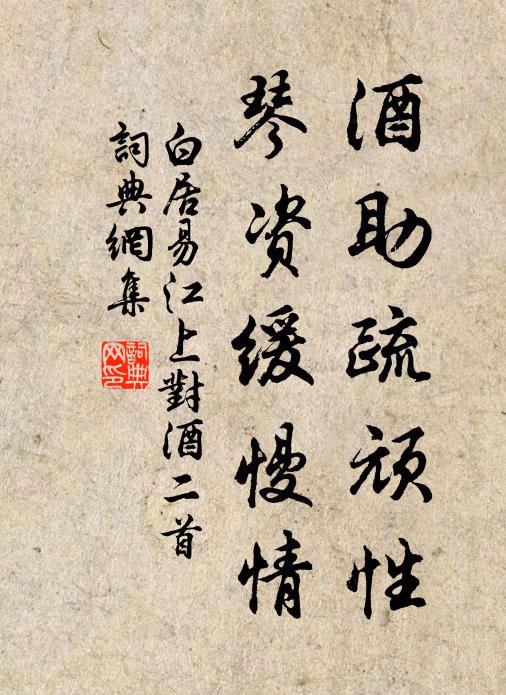 酒助疏頑性
琴資緩慢情
白居易江上對酒二首
詞典網集
詞典
网印